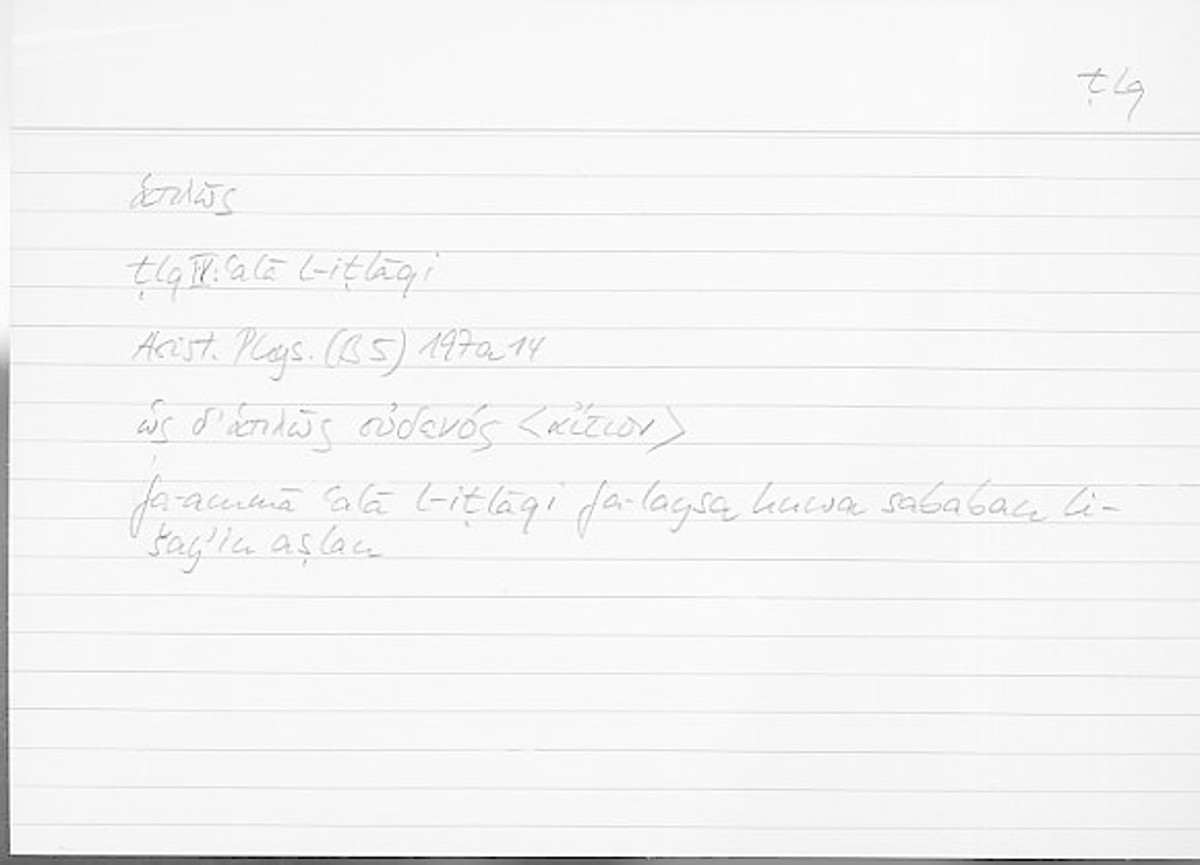 ṭlq
ἁπλῶς
ṭlq IV: ʿalā l-iṭlāqi
Arist. Phys. (B 5) 197a14
ὡς δ' ἁπλῶς οὐδενός <αἴτιον>
fa-ammā ʿalā l-iṭlāqi fa-laysa huwa sababan li-
šayʾin aṣlan